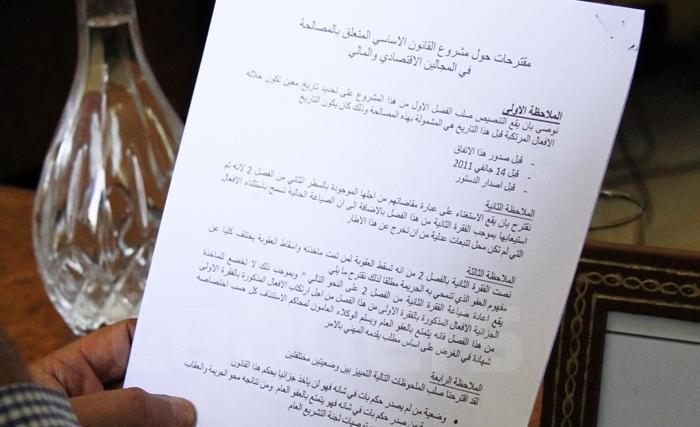 مقترحات حول مشروع القانون الاساسي المتعلق بالمصالحة
في المجالين الاقتصادي والمالي
الملاحظة الاولى
نوصي بان يقع التنصيص صلب الفصل الاول من هذا المشروع على تحديد تاريخ معين تكون خلاله
الافعال المرتكبة قبل هذا التاريخ هي المشمولة بهذه المصالحة وذلك كان يكون التاريخ
- قبل صدور هذا الاتفاق
- قبل 14 جانفي 2011
- قبل اصدار الدستور
الملاحظة الثانية
نقترح بان يقع الاستغناء على عبارة مقاضاتهم من اجلها الموجودة بالسطر الثاني من الفصل 2 لانه تم
استيعابها بموجب الفقرة الثانية من هذا الفصل بالاضافة الى ان الصياغة الحالية تسمح باستثناء الافعال
التي لم تكن محل تتبعات عدلية من ان تخرج عن هذا الاطار
الملاحظة الثالثة
نصت الفقرة الثانية بالفصل 2 من انه تسقط العقوبة لمن تمت ماخذته واسقاط العقوبة يختلف كليا عن
مفهوم العفو الذي تنمحي به الجريمة مطلقا لذلك نقترح ما يلي
يقع اعادة صياغة الفقرة الثانية من الفصل 2 على النحو التالي " وبموجب ذلك لا تخضع للماخذة
الجزائية الافعال المذكورة بالفقرة الاولى من هذا الفصل من اجل ارتكاب الافعال المذكورة بالفقرة الاولى
من هذا الفصل فانه يتمتع بالعفو العام ويسلم الوكلاء العامون لمحاكم الاستئناف كل حسب اختصاصه
شهادة في الغرض على اساس مطلب يقدمه المهني بالامر
الملاحظة الرابعة
لقد اقترحنا صلب الملحوظات التالية التمييز بين وضعيتين مختلفتين
• وضعية من لم يصدر حكم بات في شانه فهو لن يأخذ جزائيا بحكم هذا القانون
من صدر حكم بات في شانه فهو يتمتع بالعفو العام ومن نتائجه محو الجريمة والعقاب
توصيات لجنة التشريع العام